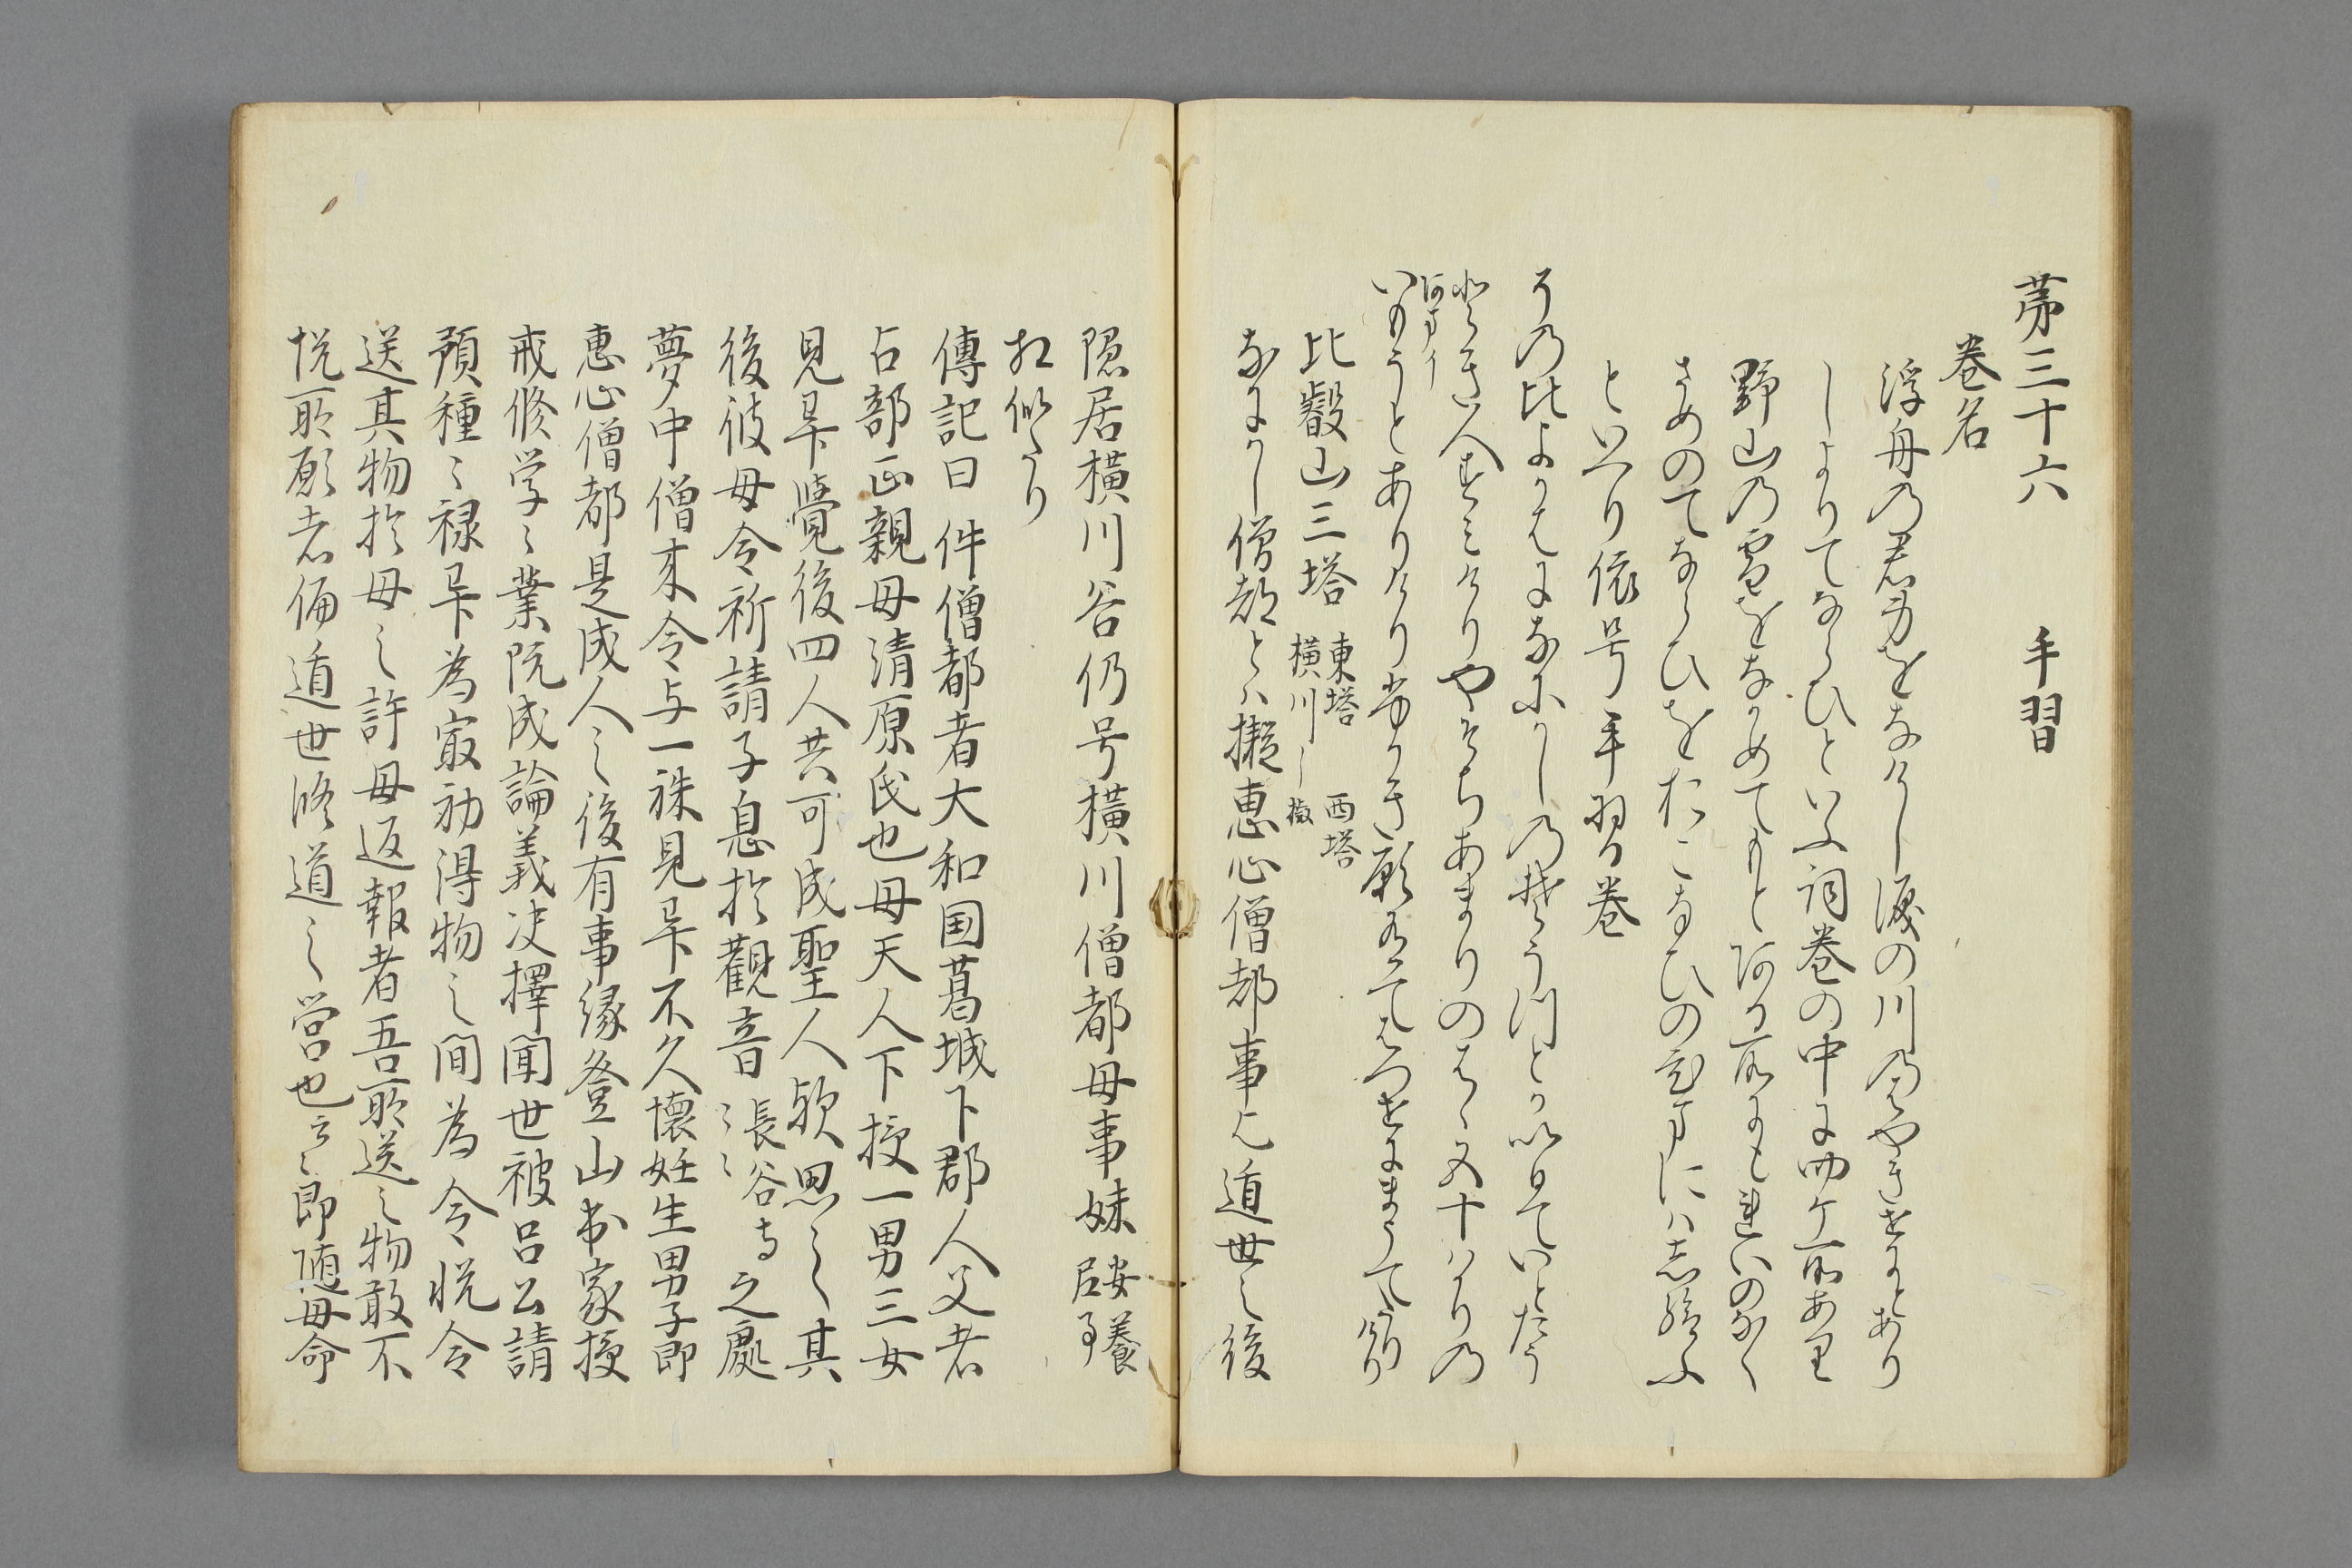 第三十六　手習
巻名
浮舟乃君身をなけし涙の川乃はやきせにとあり
しよりてならひといふ詞巻の中に四ケ所あり
野山乃雪をなかめてもと何る所にも例のなく
さめのてならひをおこなひのひまにはし給ふ
といへり依号手習巻
その比よかはになにかし乃そうつとかいひていとたう
とき人すみけりやそちあまりのはゝ五十はかりの
いもうとありけりふかき願ありてはつせにまうてたりけり
比叡山三塔　東塔　西塔
横川
なにかし僧都とハ擬恵心僧都事也遁世之後
隠居横川谷仍号横川僧都母事妹安養尼事
相似たり
傳記曰件僧都者大和国葛城下郡人父者
占部正親母清原氏也母天人下授一男三女
見畢覺後四人共可成聖人歟思之其
後彼母令祈請子息於觀音長谷寺云々之處
夢中僧来令与一珠見畢不久懐妊生男子即
恵心僧都是成人之後有事縁登山出家授
戒修学々業既成論義決擇聞世被召公請
預種々禄畢為最初得物之間為令悦令
送其物於母之許母返報者吾所送之物敢不
悦所願者偏遁世修道之営也云々即随母命